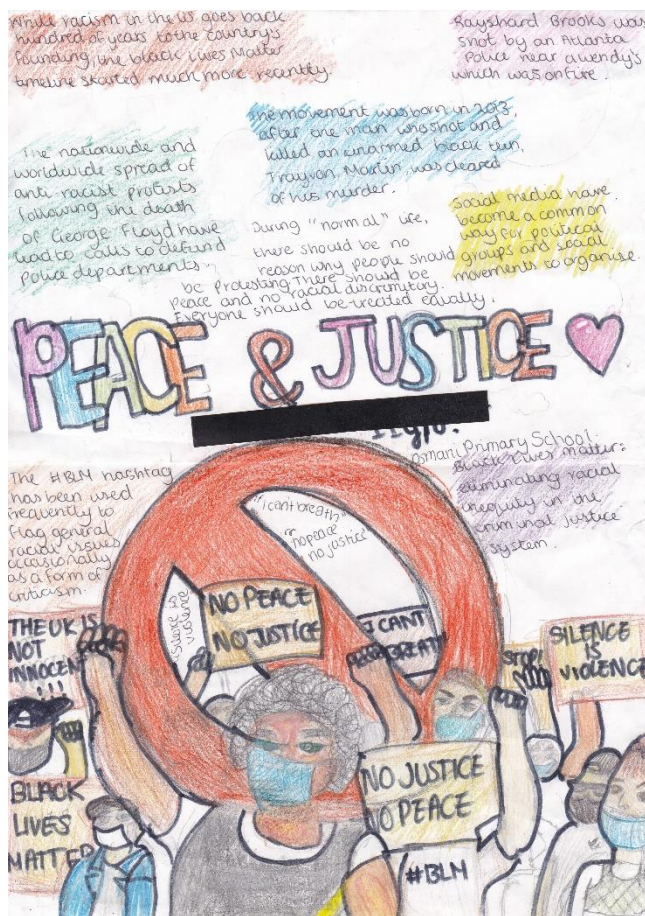 While racism in the US goes back
hundred of years to the country's
founding, the black lives Matter
timeline started much more recently.
Rayshard Brooks was
shot by an Atlanta
Police near a wendy's
which was on fire.
The movement was born in 2013,
after one man who shot and
killed an unarmed black teen,
Trayvon Martin, was cleared
of his murder.
The nationwide and
worldwide spread of
anti racist protests
following the death
of George Floyd have
lead to calls to defund
Police departments
Social media have
become a common
way for political
groups and social
movements to organise.
During "normal" life,
there should be no
reason why people should
be Protesting. There should be
peace and no racial discrimitory.
Everyone should be treated equally.
PEACE & JUSTICE
Osmani Primary School.
Black lives matter:
eliminating racial
inequity in the
criminal justice
system.
The #BLM hashtag
has been used
frequently to
flag general
racial issues
occasionally
as a form of
criticism.
"i cant breath"
"no peace
no justice"
silence is
violence
NO PEACE
NO JUSTICE
I CANT
BREATH
STOP!
SILENCE
IS
VIOLENCE
THE UK IS
NOT
INNOCENT
!!!
BLACK
LIVES
MATTER
NO JUSTICE
NO PEACE
#BLM